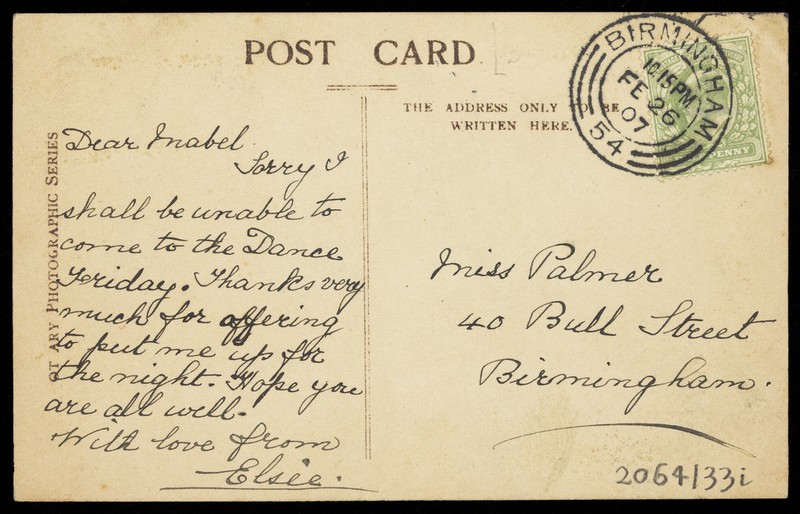 POST CARD
THE ADDRESS ONLY TO BE
WRITTEN HERE.
BIRMINGHAM
10.15PM
FE 26
07
54
PENNY
OT ARY PHOTOGRAPHIC SERIES
Dear Mabel
Sorry I
shall be unable to
come to the Dance
Feriday. Thanks very
much for offering
to put me up for
the night. Hope you
are all well.
With love from
Elsie.
Miss Palmer
40 Bull Street
Birmingham.
2064/33i